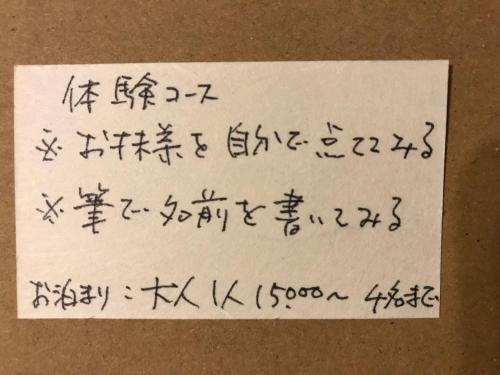 体験コース
※お抹茶を自分で点ててみる
※筆で名前を書いてみる
お泊まり：大人1人15,000〜 4名まで